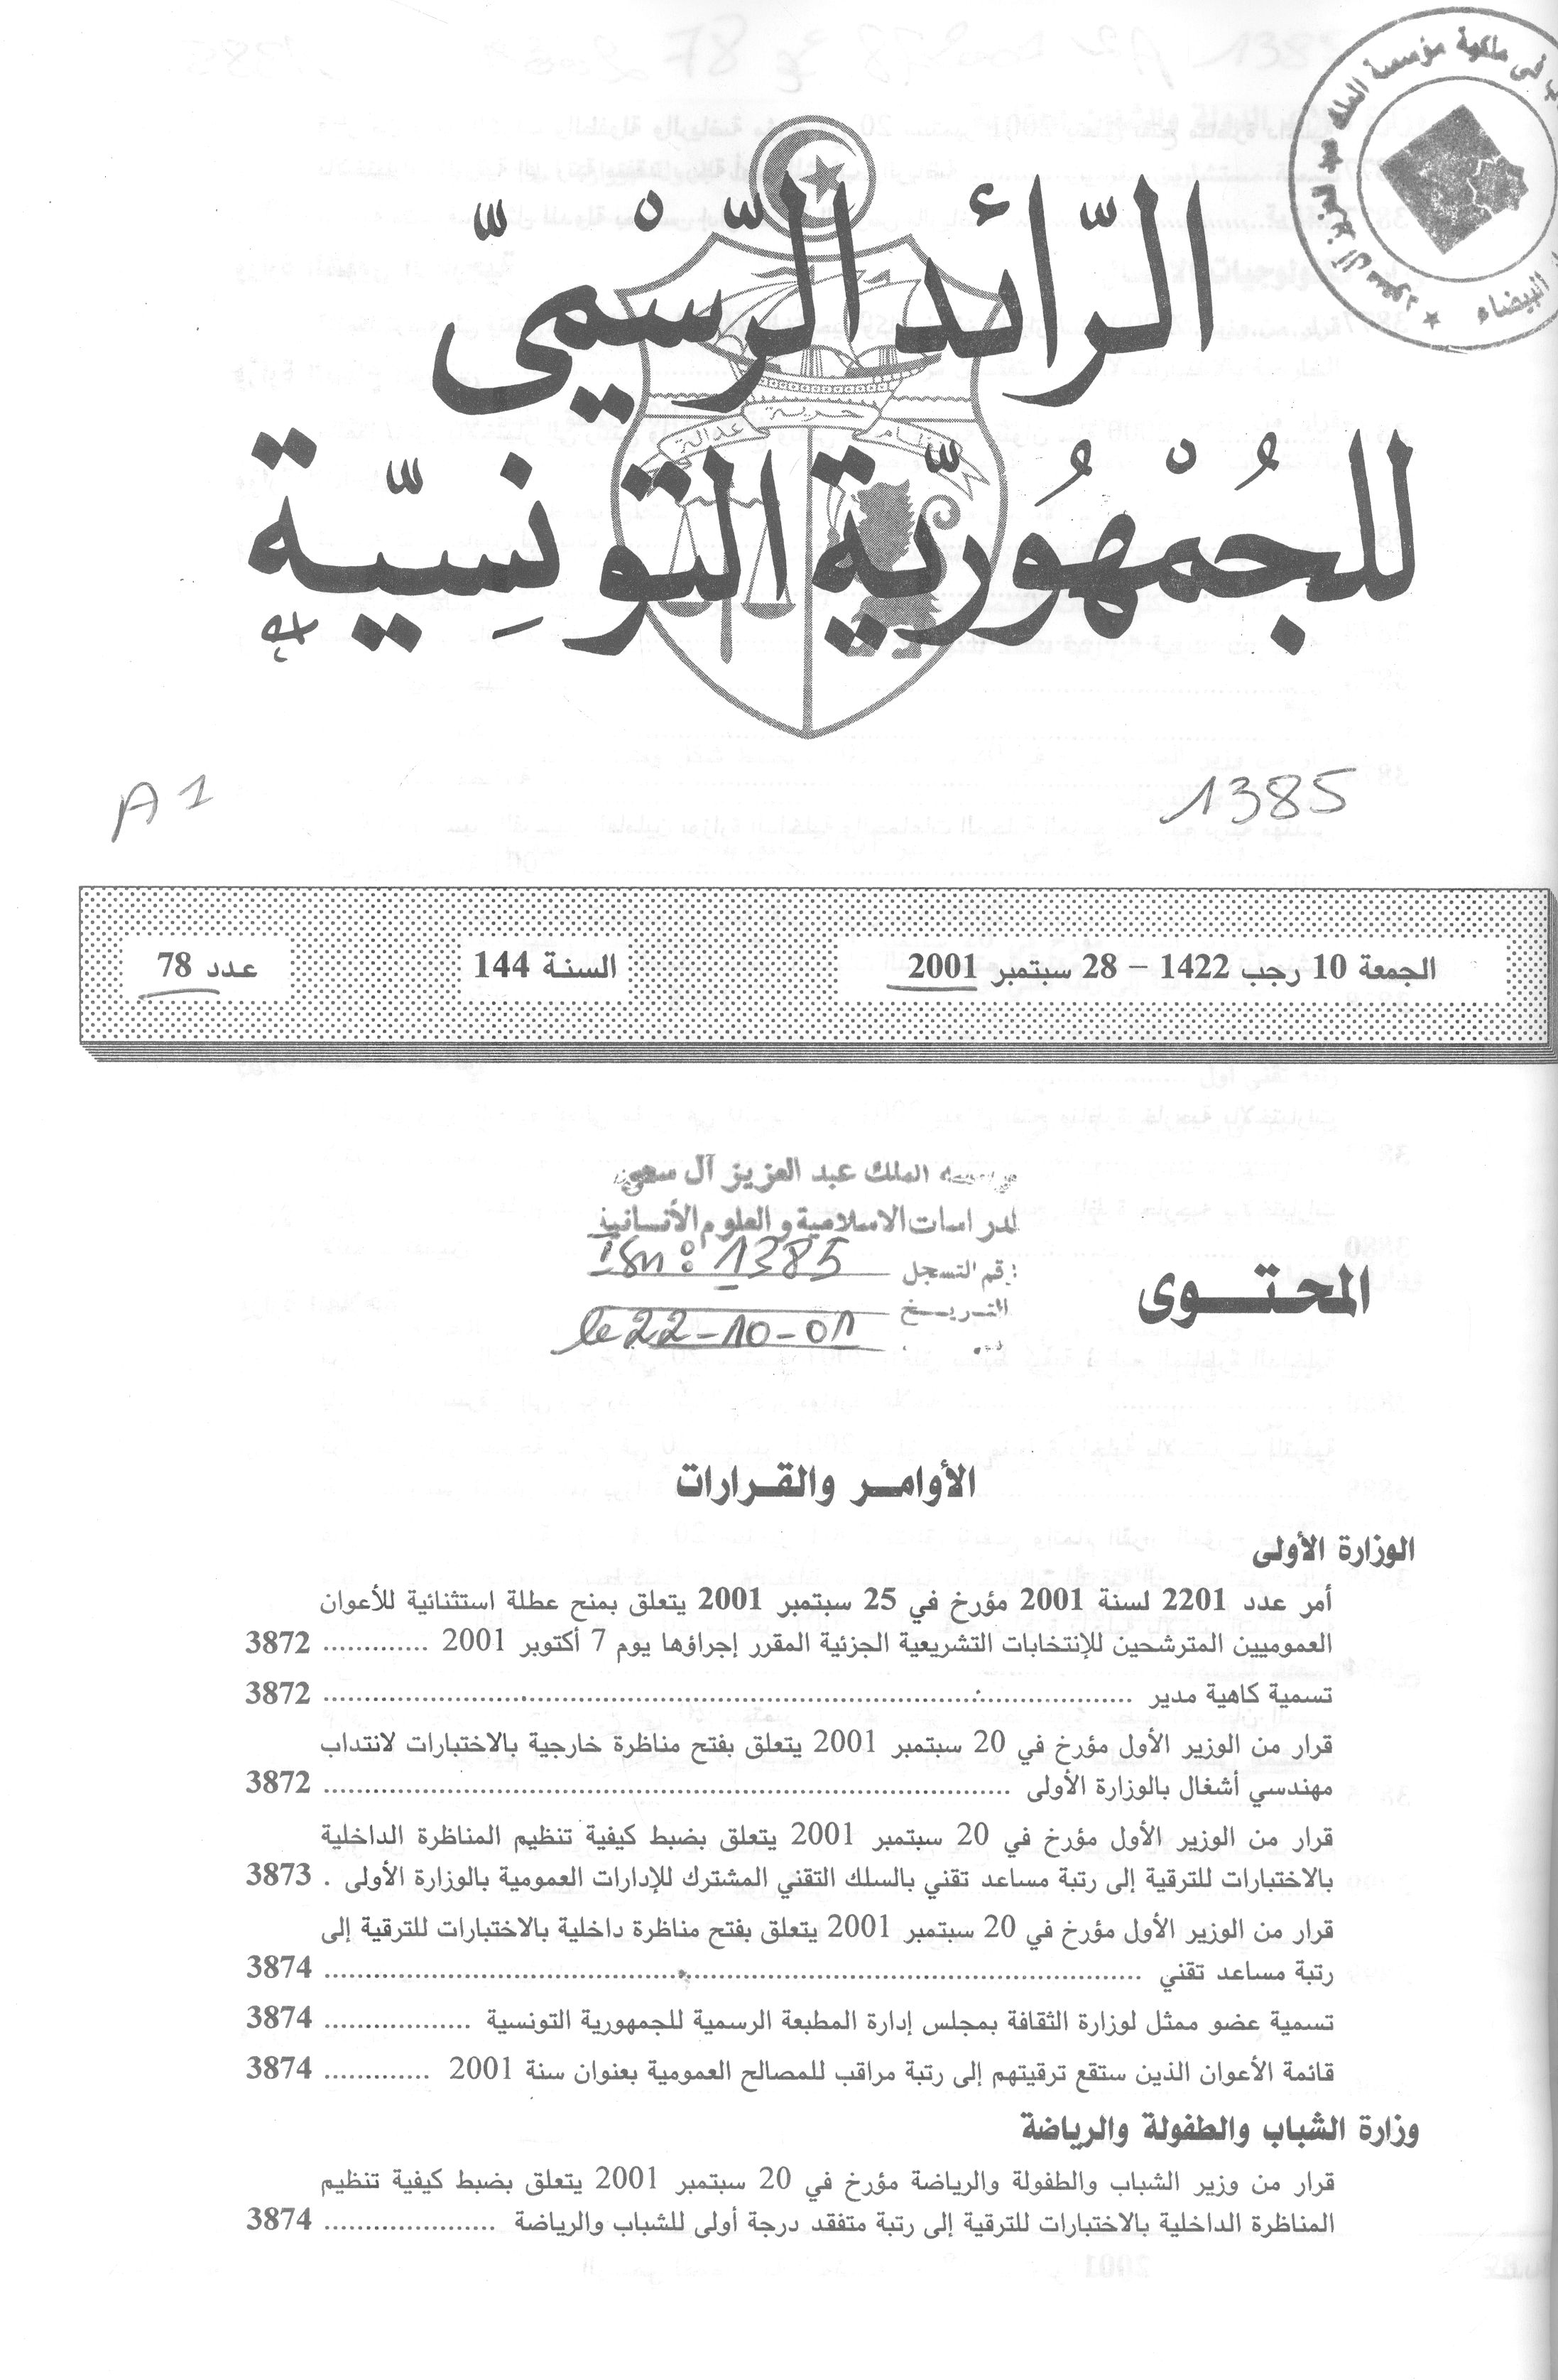 الرّائد الرّسْميّ
للجُمْهُوريّة التونِسيّة
نظام حرية عدالة
في ملكية مؤسسة الملك عبد العزيز آل سعود
البيضاء
A1
1385
الجمعة 10 رجب 1422 – 28 سبتمبر 2001
السنة 144
عدد 78
الملك عبد العزيز آل سعود
للدراسات الاسلامية والعلوم الأنسانية
رقم التسجل Isn: 1385
التـريـخ le 22-10-01
المحتـوى
الأوامـر والقـرارات
الوزارة الأولى
أمر عدد 2201 لسنة 2001 مؤرخ في 25 سبتمبر 2001 يتعلق بمنح عطلة استثنائية للأعوان
العموميين المترشحين للإنتخابات التشريعية الجزئية المقرر إجراؤها يوم 7 أكتوبر 2001 ............. 3872
تسمية كاهية مدير ............................................................ 3872
قرار من الوزير الأول مؤرخ في 20 سبتمبر 2001 يتعلق بفتح مناظرة خارجية بالاختبارات لانتداب
مهندسي أشغال بالوزارة الأولى ............................................................ 3872
قرار من الوزير الأول مؤرخ في 20 سبتمبر 2001 يتعلق بضبط كيفية تنظيم المناظرة الداخلية
بالاختبارات للترقية إلى رتبة مساعد تقني بالسلك التقني المشترك للإدارات العمومية بالوزارة الأولى . 3873
قرار من الوزير الأول مؤرخ في 20 سبتمبر 2001 يتعلق بفتح مناظرة داخلية بالاختبارات للترقية إلى
رتبة مساعد تقني ............................................................ 3874
تسمية عضو ممثل لوزارة الثقافة بمجلس إدارة المطبعة الرسمية للجمهورية التونسية .................. 3874
قائمة الأعوان الذين ستقع ترقيتهم إلى رتبة مراقب للمصالح العمومية بعنوان سنة 2001 ............. 3874
وزارة الشباب والطفولة والرياضة
قرار من وزير الشباب والطفولة والرياضة مؤرخ في 20 سبتمبر 2001 يتعلق بضبط كيفية تنظيم
المناظرة الداخلية بالاختبارات للترقية إلى رتبة متفقد درجة أولى للشباب والرياضة ..................... 3874